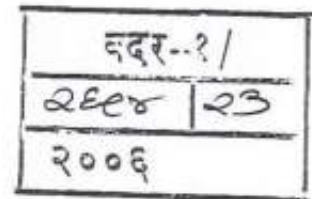 वदर--१/
२६९४ २३
२००६